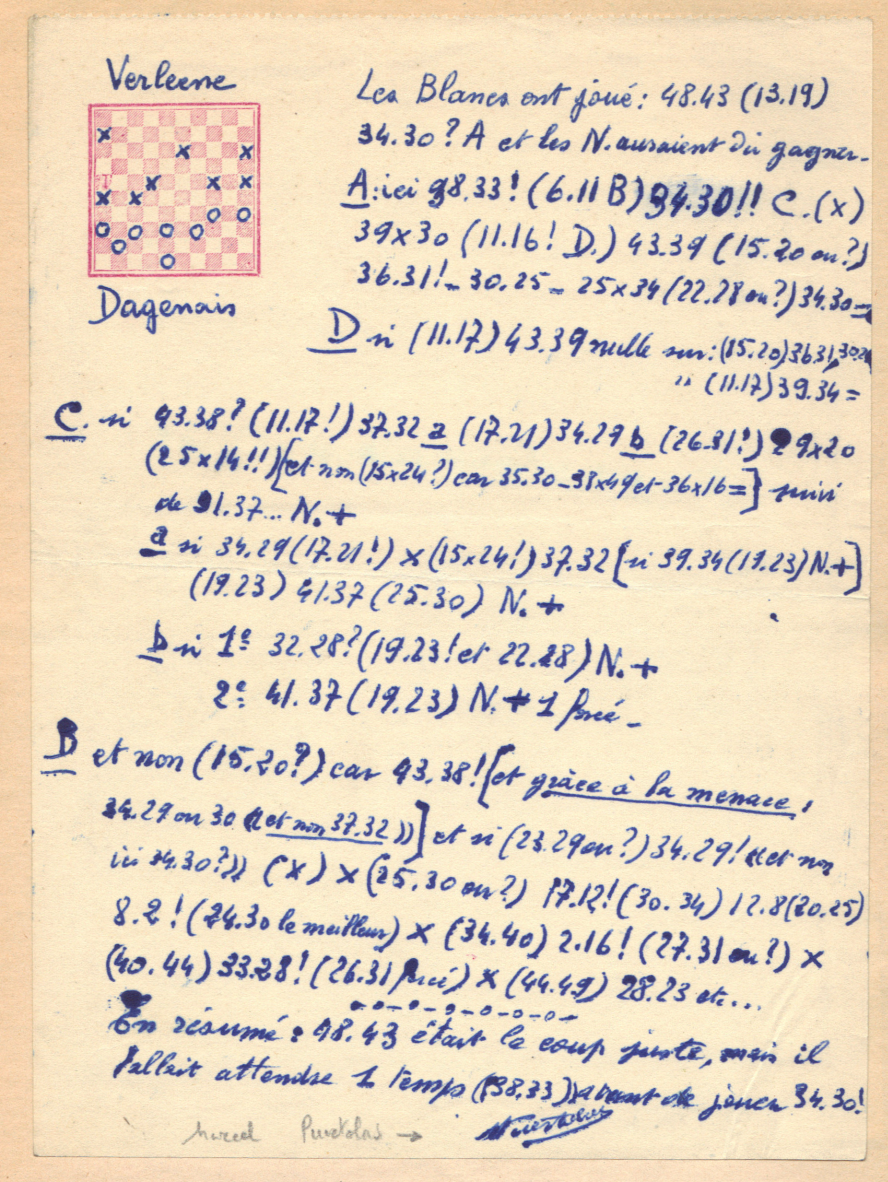 Verleene
Dagenais
Les Blancs ont joué : 48.43 (13.19)
34.30 ? A et les N. auraient dû gagner.
A : ici 38.33 ! (6.11 B) 34.30 !! C. (x)
39x30 (11.16 ! D.) 43.39 (15.20 ou ?)
36.31 ! _ 30.25 _ 25x34 (22.28 ou ?) 34.30 =
D si (11.17) 43.39 nulle sur : (15.20) 36.31, 30.2
" (11.17) 39.34 =
C. si 43.38 ? (11.17 !) 37.32 a (17.21) 34.29 b (26.31 !) 29x20
(25x14 !!) [et non (15x24 ?) car 35.30 _ 38x49 et 36x16 =] suivi
de 41.37 ... N. +
a si 34.29 (17.21 !) x (15x24 !) 37.32 [si 39.34 (19.23) N. +]
(19.23) 41.37 (25.30) N. +
b si 1º 32.28 ? (19.23 ! et 22.28) N. +
2º 41.37 (19.23) N. + 1 forcé _
B et non (15.20 ?) car 43.38 ! [et grâce à la menace,
34.29 ou 30 ((et non 37.32))] et si (23.29 ou ?) 34.29 ! ((et non
ici 34.30 ?)) (x) x (25.30 ou ?) 17.12 ! (30.34) 12.8 (20.25)
8.2 ! (24.30 le meilleur) x (34.40) 2.16 ! (27.31 ou ?) x
(40.44) 33.28 ! (26.31 forcé) x (44.49) 28.23 etc...
En résumé : 48.43 était le coup juste, mais il
fallait attendre 1 temps (38.33) avant de jouer 34.30 !
Marcel →